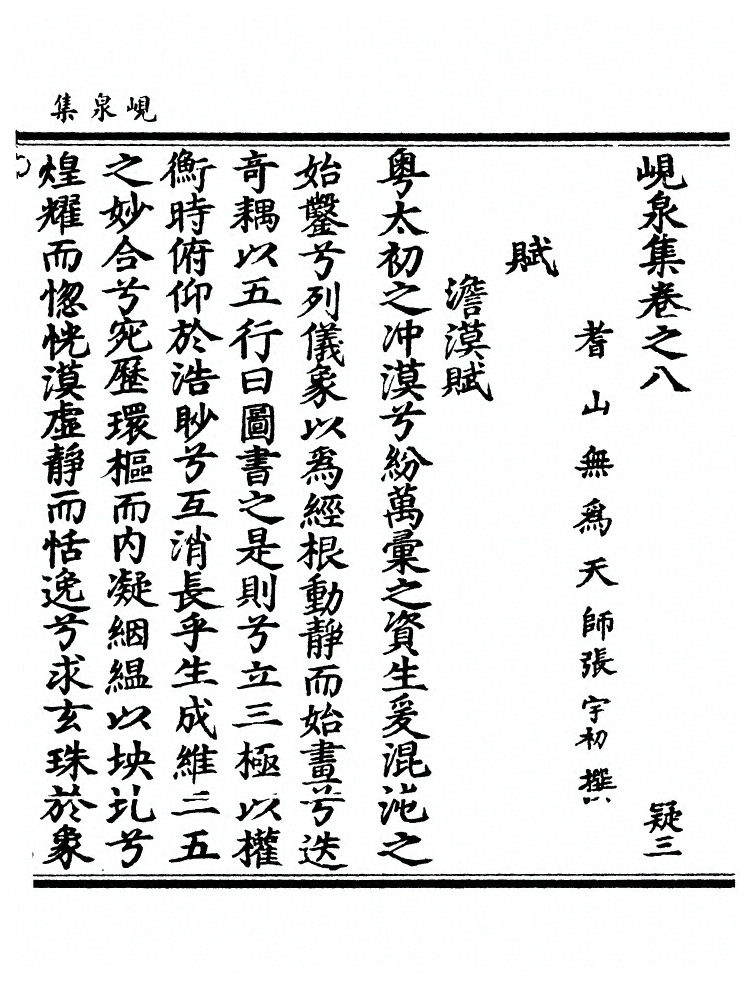 峴泉集
峴泉集卷之八 疑三
耆山無爲天師張宇初撰
賦
澹漠賦
粤太初之冲漠兮紛萬彙之資生爰混沌之
始鑿兮列儀象以爲經根動靜而始畫兮迭
奇耦以五行曰圖書之是則兮立三極以權
衡時俯仰於浩眇兮互消長乎生成維二五
之妙合兮宛歷環樞而内凝絪緼以坱圠兮
煌耀而惚恍漠虛靜而恬逸兮求玄珠於象